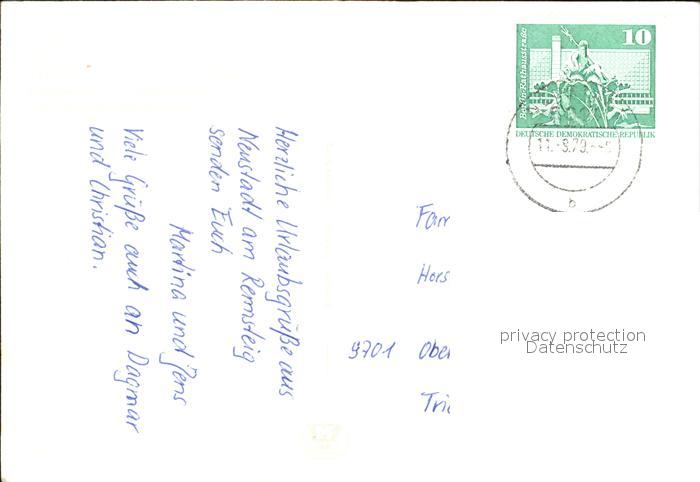 Herzliche Urlaubsgrüße aus
Neustadt am Rennsteig
senden Euch
Martina und Jens
Viele Grüße auch an Dagmar
und Christian.
10
Berlin-Rathausstraße
DEUTSCHE DEMOKRATISCHE REPUBLIK
b
Fam
Hors
9701 Ober
privacy protection
Datenschutz